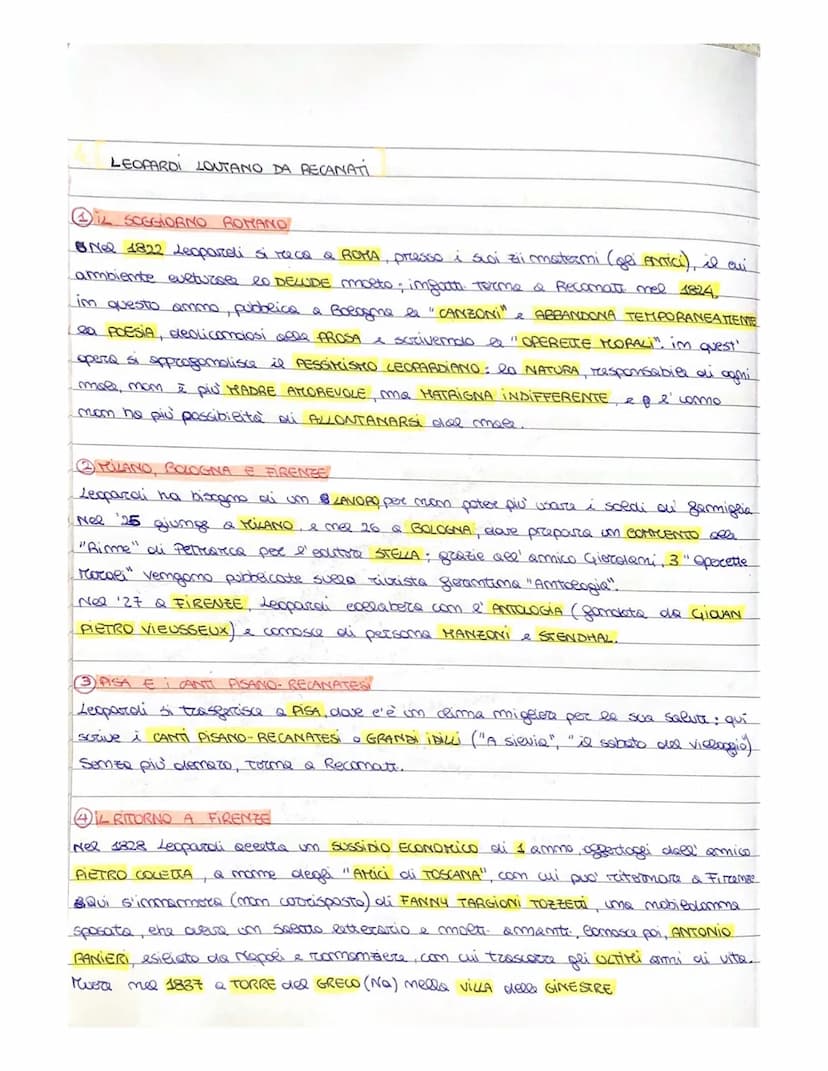 LEOPARDI LONTANO DA RECANATI
① IL SOGGIORNO ROMANO
Nel 1822 Leopardi si reca a ROMA, presso i suoi zii materni (gli ANTICI), il cui
ambiente culturale lo DELUDE molto; infatti torna a Recanati nel 1824,
in questo anno, pubblica a Bologna le "CANZONI" e ABBANDONA TEMPORANEAMENTE
la POESIA, dedicandosi alla PROSA e scrivendo le "OPERETTE MORALI". in quest'
opera si approfondisce il PESSIMISMO LEOPARDIANO: la NATURA, responsabile di ogni
male, non è più MADRE AMOREVOLE, ma MATRIGNA INDIFFERENTE, e l'uomo
non ha più possibilità di ALLONTANARSI dal male.
② MILANO, BOLOGNA E FIRENZE
Leopardi ha bisogno di un LAVORO per non poter più usare i soldi di famiglia
Nel '25 giunge a MILANO, e nel 26 a BOLOGNA, dove prepara un COMMENTO alle
"Rime" di Petrarca per l'editore STELLA; grazie all'amico Giordani, 3 "Operette
Morali" vengono pubblicate sulla rivista fiorentina "Antologia".
Nel '27 a FIRENZE, Leopardi collabora con l'ANTOLOGIA (fondata da GIOVAN
PIETRO VIEUSSEUX) e conosce di persona MANZONI e STENDHAL.
③ PISA E i CANTI PISANO-RECANATESI
Leopardi si trasferisce a PISA, dove c'è un clima migliore per la sua salute; qui
scrive i CANTI PISANO-RECANATESI o GRANDI IDILLI ("A Silvia", "il sabato del villaggio")
Senza più denaro, torna a Recanati.
④ IL RITORNO A FIRENZE
Nel 1828 Leopardi accetta un SUSSIDIO ECONOMICO di 1 anno, offertogli dall'amico
PIETRO COLETTA, a nome degli "AMICI di TOSCANA", con cui può ritornare a Firenze
Qui s'innamora (non corrisposto) di FANNY TARGIONI TOZZETTI, una nobildonna
sposata, che aveva un salotto letterario e molti amanti. Conosce poi, ANTONIO
RANIERI, esiliato da Napoli e romanziere, con cui trascorre gli ULTIMI anni di vita.
Muore nel 1837 a TORRE del GRECO (Na) nella VILLA delle GINESTRE